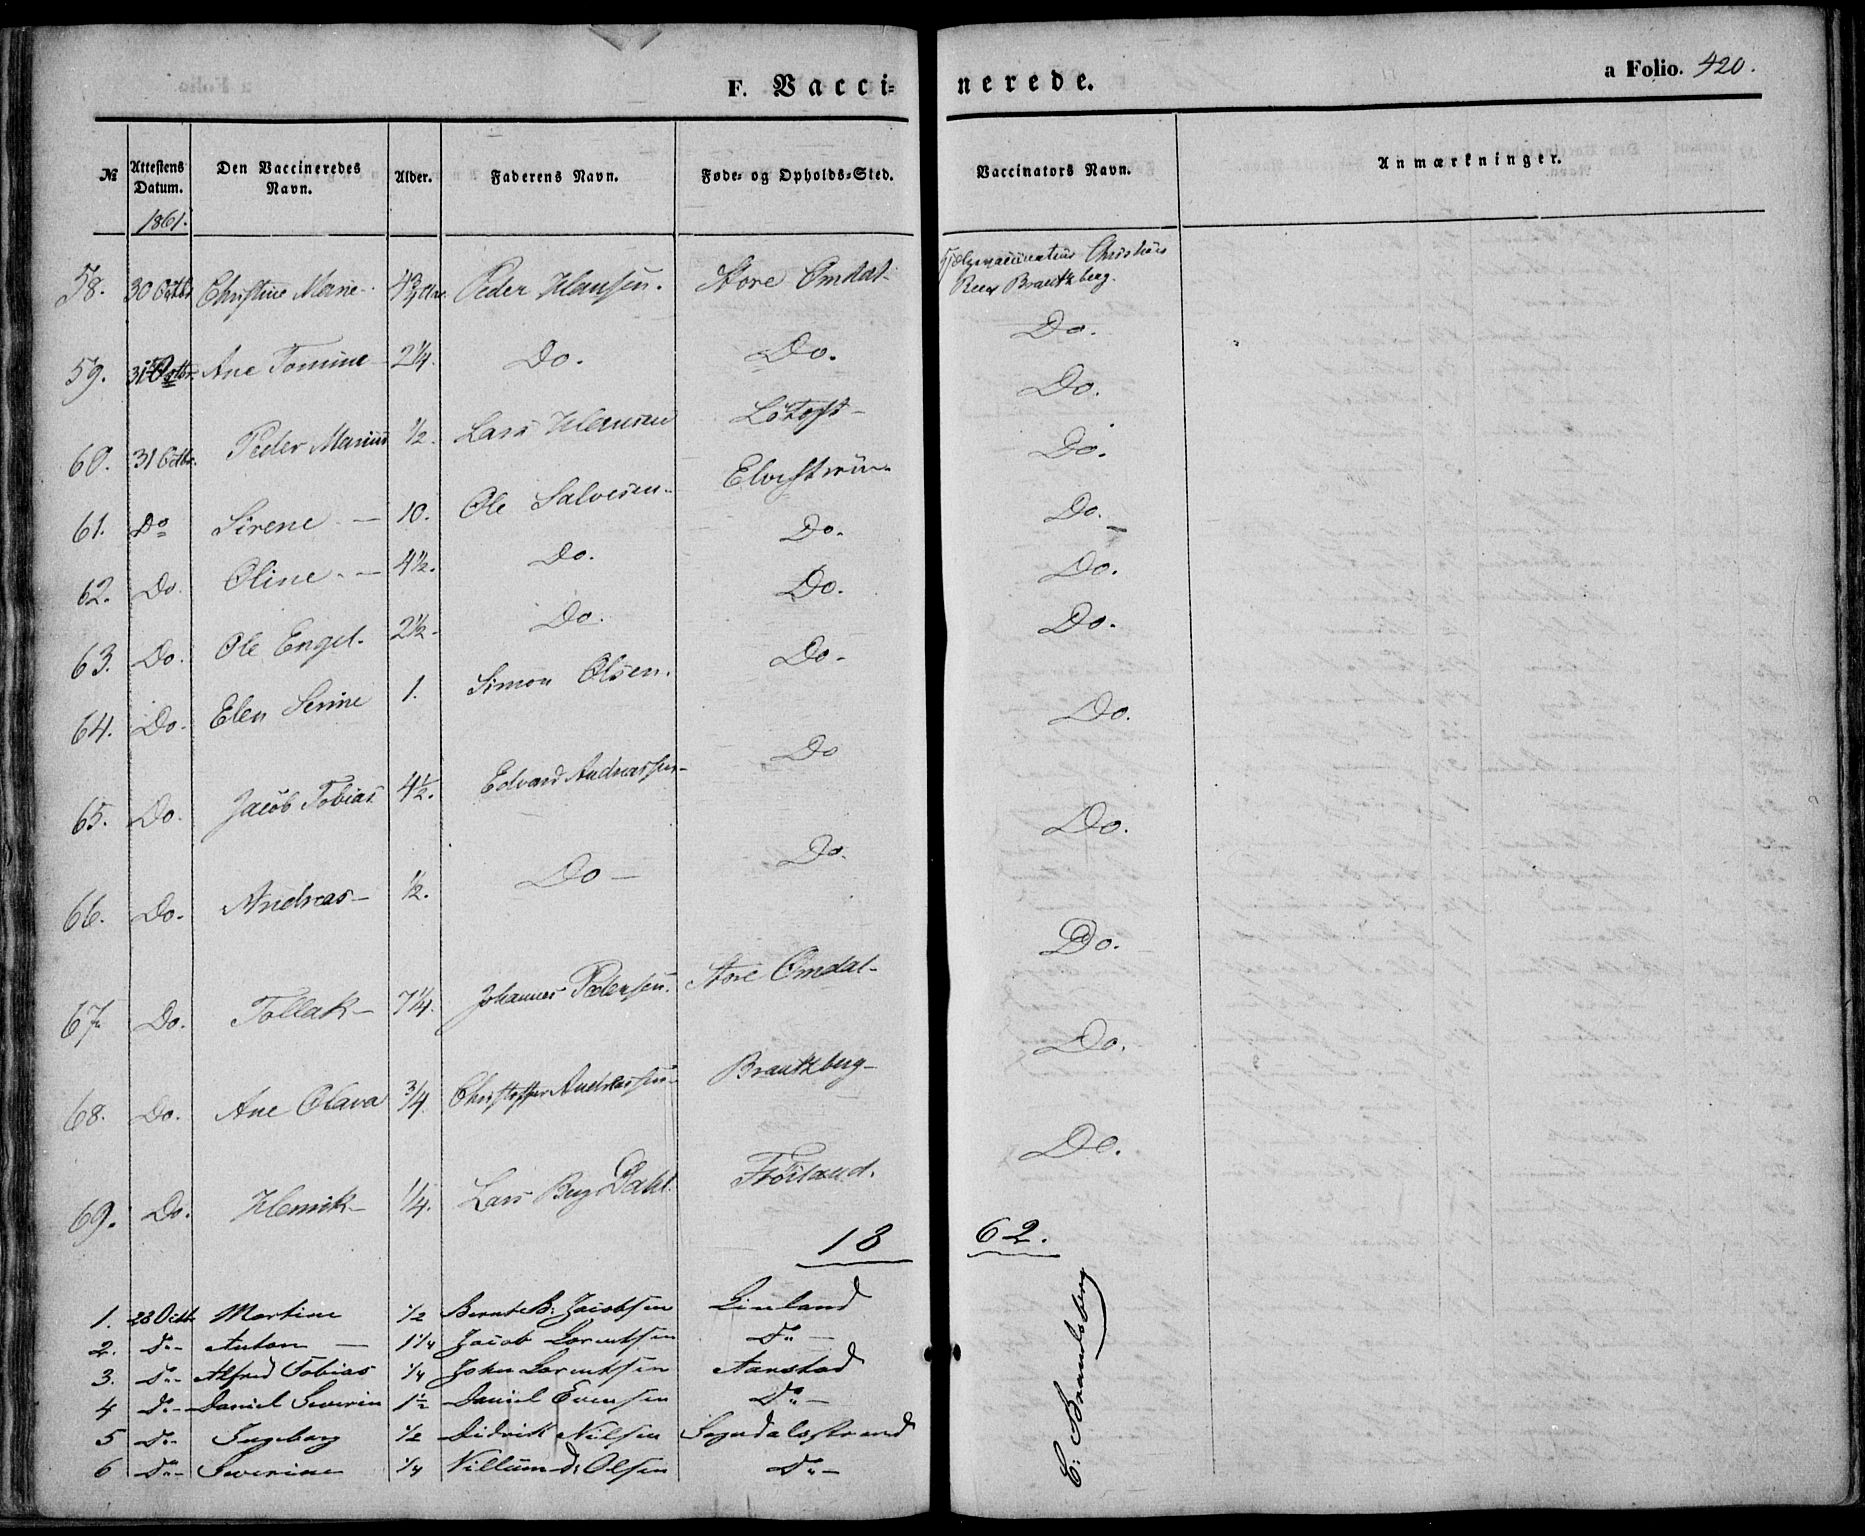 F. Vaccinerede.
a Folio. 420.
№ | Attestens Datum. | Den Vaccineredes Navn. | Alder. | Faderens Navn. | Føde- og Opholds-Sted. | Vaccinators Navn. | Anmærkninger.
1861.
58. 30 Octbr Christine Marie Peder Hansen. Store Omdal Christian Brautzberg.
59. 31 Octbr. Ane Tomine 2 1/4. Do. Do. Do.
60. 31 Octbr. Peder Marius 1/2. Lars Hansen Do.
61. Do Sirene — 10. Ole Salvesen. Do.
62. Do Oline. — 4 1/2. Do. Do. Do.
63. Do. Ole Engel. 2 1/2. Do. Do. Do.
64. Do. Elen Serine 1. Simon Olsen. Do. Do.
65. Do. Jacob Tobias 4 1/2. Edvard Andreassen Do Do.
66. Do. Andreas 1/2. Do — Do. Do.
67. Do. Tollak 7 1/4. Johannes Pedersen. Store Omdal Do.
68. Do. Ane Olava 3/4. Christopher Andreassen Brautzberg Do.
69. Do. Henrik 1/4. Lars Berg Dahl. Do.
18 62.
1. 28 Octb Martine 1/2 Bernt B. Jacobsen Linland
2. Do Anton — 1 1/4 Jacob Lorentsen Do —
3. Do Alfred Tobias 1/4 John Lorentsen Aanstad
4 Do Daniel Severin 1 1/2 Daniel Evensen Do —
5 Do Ingeborg 1/2 Didrik Nilsen Sogndalsstrand
6 Do Severine 1/4 Villum D. Olsen Do —
C. Brandsberg